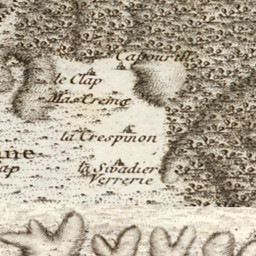 Capourill
le Clap
Mas Crema
la Crespinon
ine
la Swadier
ap
Verrerie